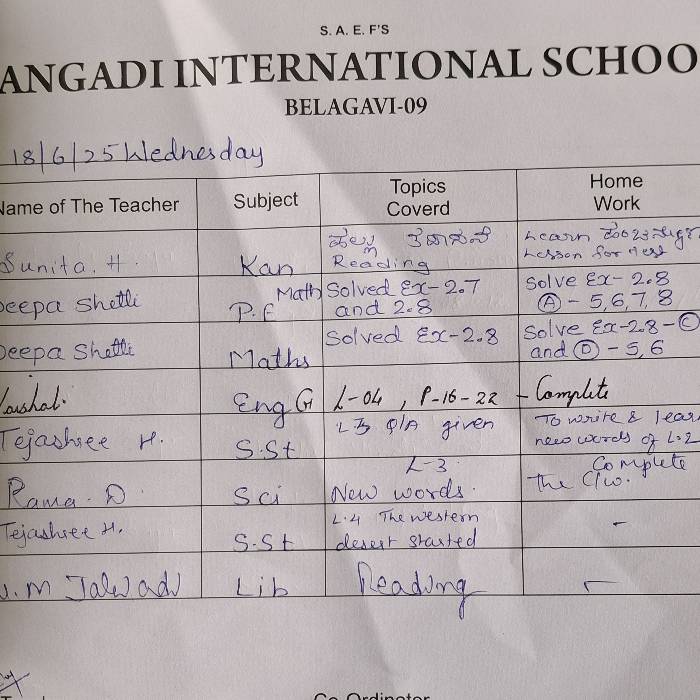 S. A. E. F'S
ANGADI INTERNATIONAL SCHOO
BELAGAVI-09
18/6/25 Wednesday
Name of The Teacher Subject Topics Coverd Home Work
Sunita. H. Kan Reading Learn Lesson for Test
Deepa Shetti P.E Math Solved Ex-2.7 and 2.8 Solve Ex-2.8 Ⓐ-5,6,7,8
Deepa Shetti Maths Solved Ex-2.8 Solve Ex-2.8-Ⓒ and Ⓓ-5,6
Kaushal. Eng G L-04, P-16-22 - Complete
Tejashree H. S.St Q/A given To write & lear new words of L.2
Rama. D. Sci L-3 New words. Complete the C/w.
Tejashree H. S.St L.4 The western desert started -
M Jalwadi Lib Reading -
Co-Ordinator